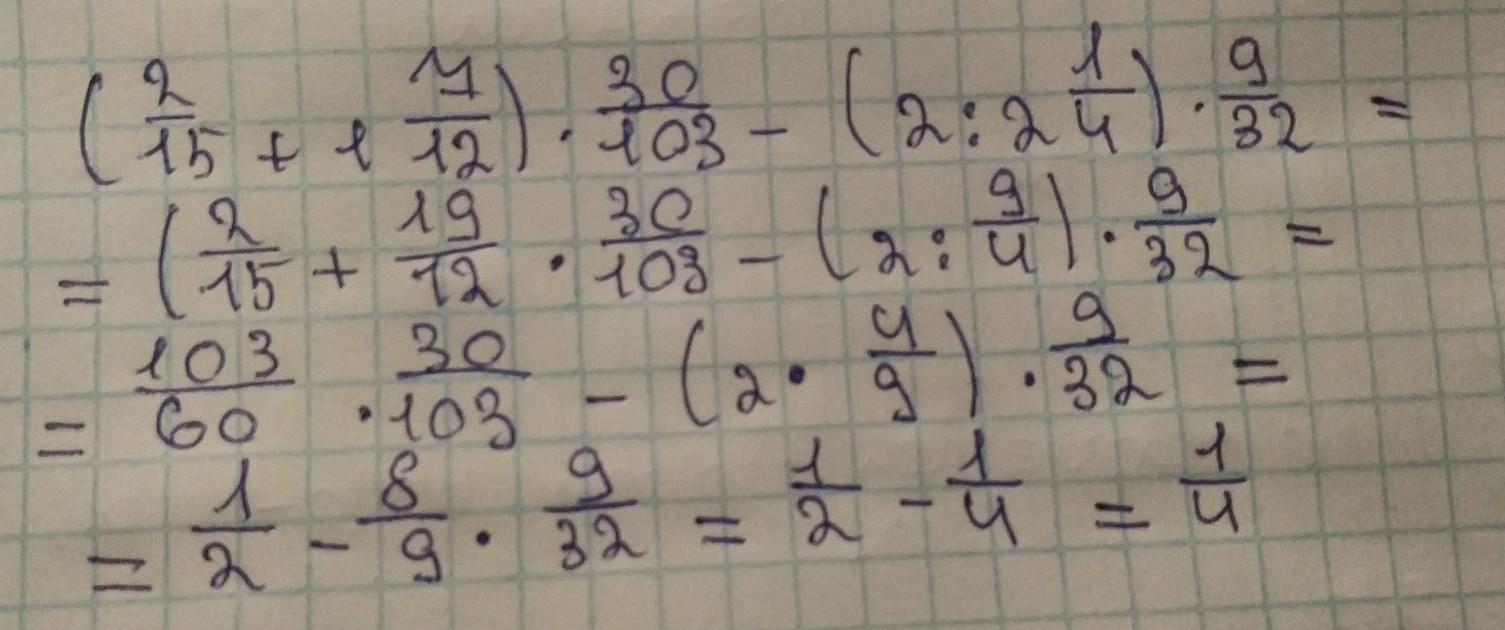 (2/15 + 1 7/12) · 30/103 - (2 : 2 1/4) · 9/32 =
= (2/15 + 19/12 · 30/103 - (2 : 9/4) · 9/32 =
= 103/60 · 30/103 - (2 · 4/9) · 9/32 =
= 1/2 - 8/9 · 9/32 = 1/2 - 1/4 = 1/4